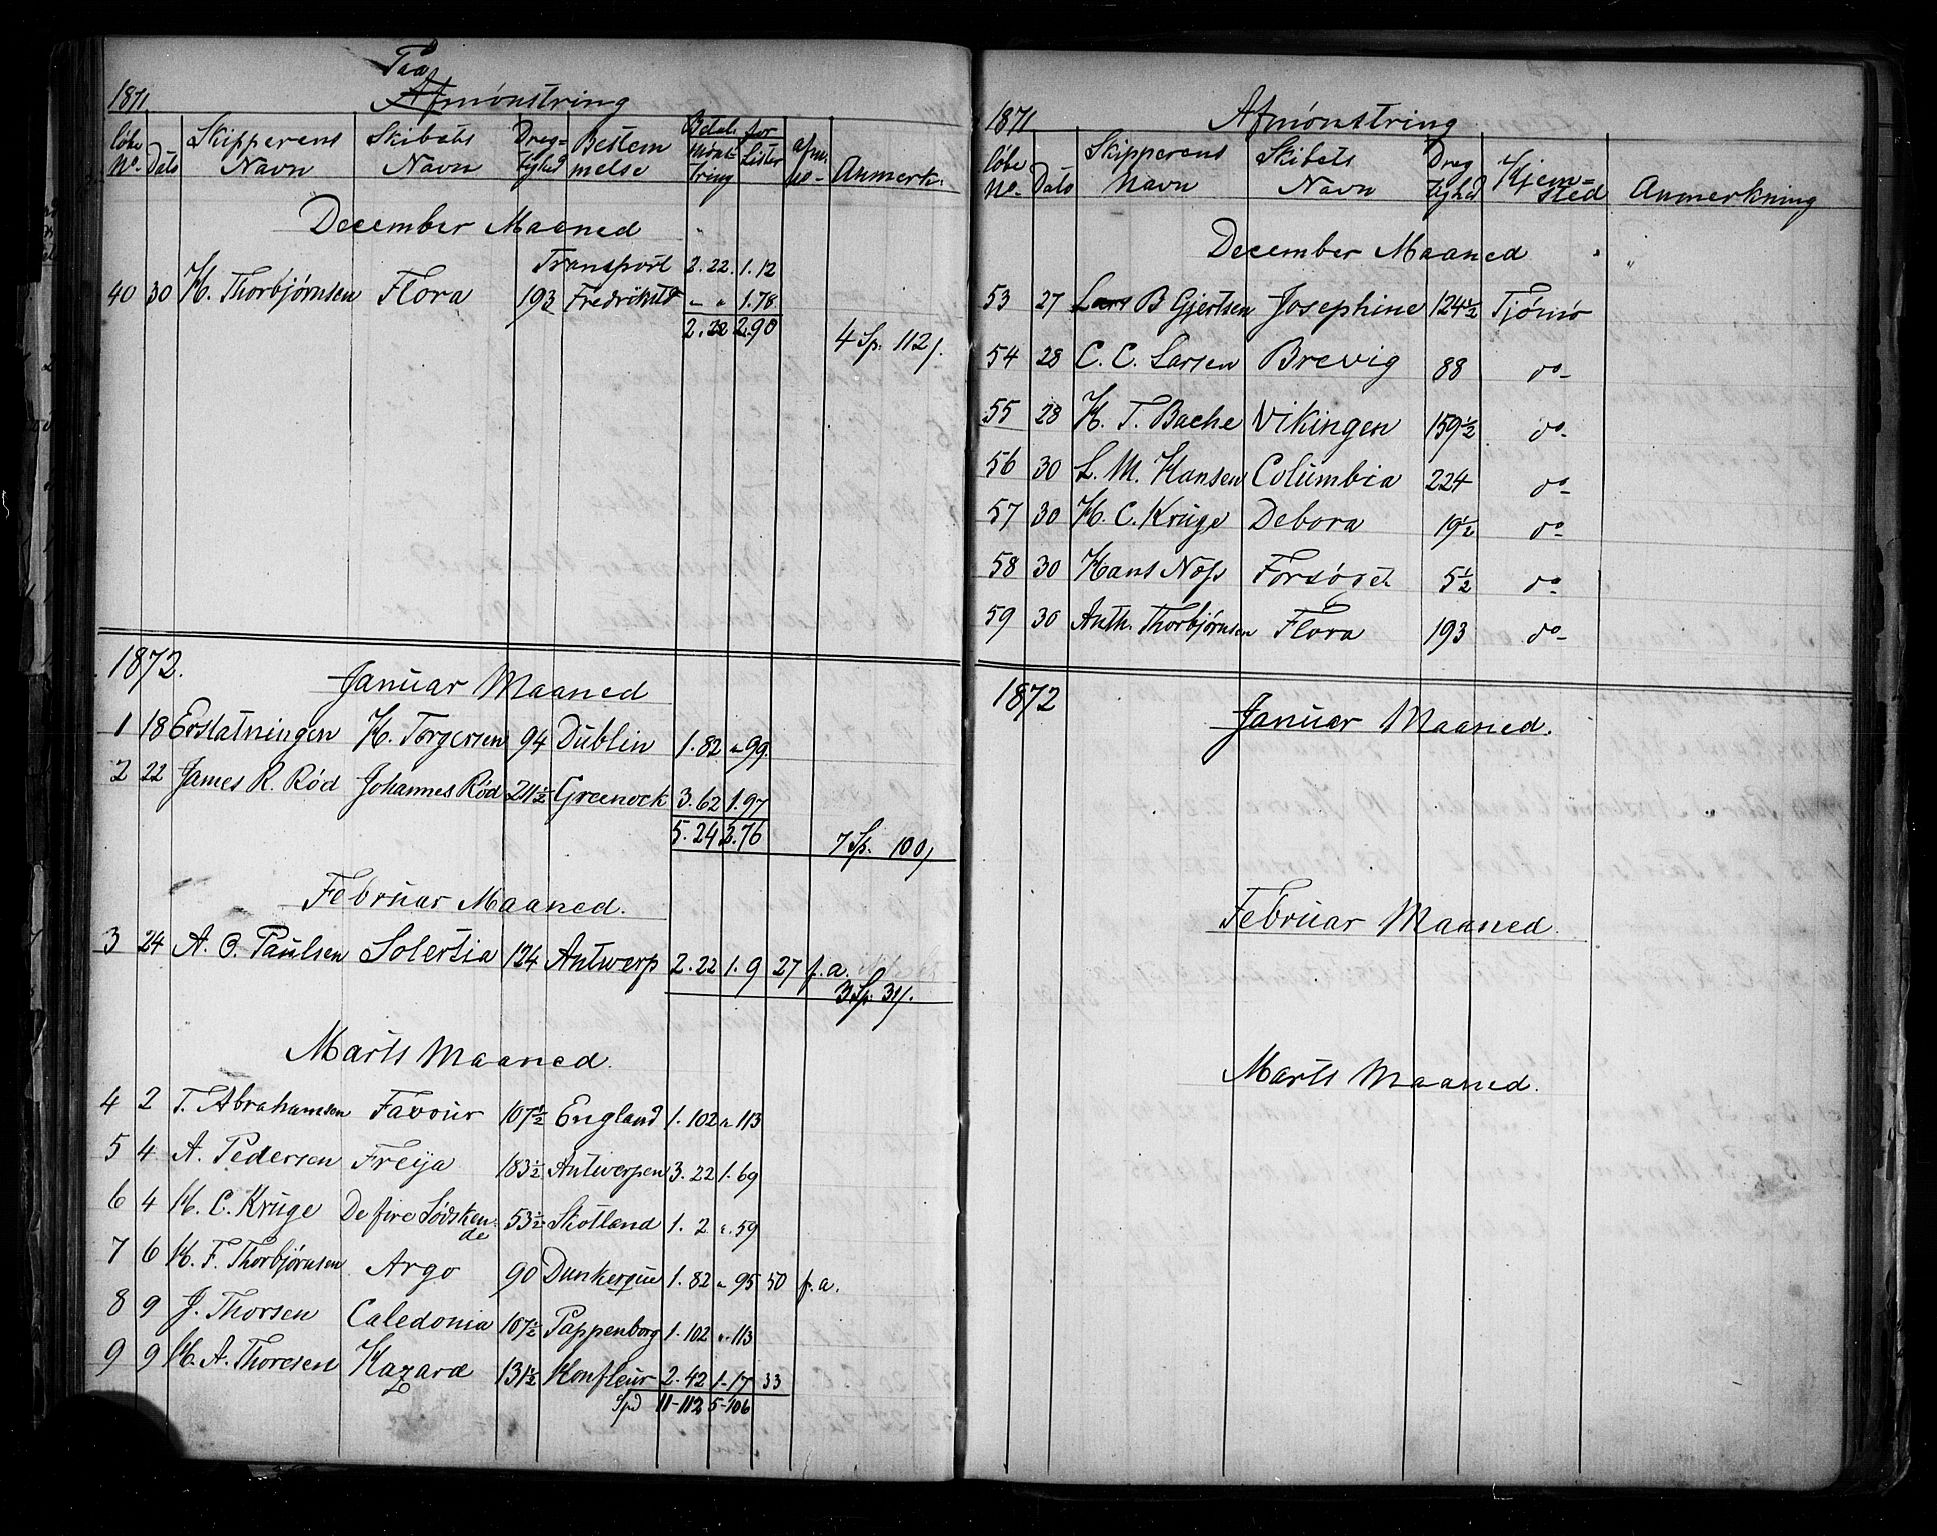 1871. Paa
Afmönstring
löbe No. Dato Skipperens Navn Skibets Navn Dreg-tighed Bestem melse Betal. Mönst-tring for Lister Anmerk.
December Maaned
Transport 2.22. 1.12
40 30 H. Thorbjørnsen Flora 193 Fredrikstd „ „ 1.78
2.22 2.90
4 Sp. 112/.
1872.
Januar Maaned
1 18 Erstatningen H. Torgersen 94 Dublin 1.82 „ 99.
2 22 James R. Rød Johannes Rød 211½ Greenock 3.62 1.97
5.24 2.76
7 Sp. 100/
Februar Maaned.
3 24 A. O. Paulsen Solertia 124 Antwerp 2.22 1.9 27 f.a.
3 Sp. 31/.
Marts Maaned.
4 2 T. Abrahamsen Favour 107½ England 1.102 „ 113
5 4 A. Pedersen Freija 183½ Antwerpen 3.22 1.69
6 4 H. C. Krüge De fire Sødsken-de 53½ Skotland 1.2 „ 59
7 6 H. F. Thorbjørnsen Argo 90 Dunkerque 1.82 „ 95 50 f.a.
8 9 J. Thorsen Caledonia 107½ Pappenborg 1.102 „ 113
9 9 H. A. Thoresen Hazard 131½ Honfleur 2.42 1.17 33
Spd 11-112 5-106
1871 Afmönstring
löbe No. Dato Skipperens Navn Skibets Navn Dreg tighd Hjem-sted Anmerkning
December Maaned
53 27 Lars B Gjertsen Josephine 124½ Tjømø
54 28 C. C. Larsen Brevig 88 do-
55 28 H. T. Bache Vikingen 159½ do-
56 30 L. M. Hansen Columbia 224 do-
57 30 H. C. Krüge Debora 19½ do-
58 30 Hans Nøss Forsøget 5½ do-
59 30 Anth. Thorbjørnsen Flora 193 do-
1872
Januar Maaned.
Februar Maaned.
Marts Maaned.